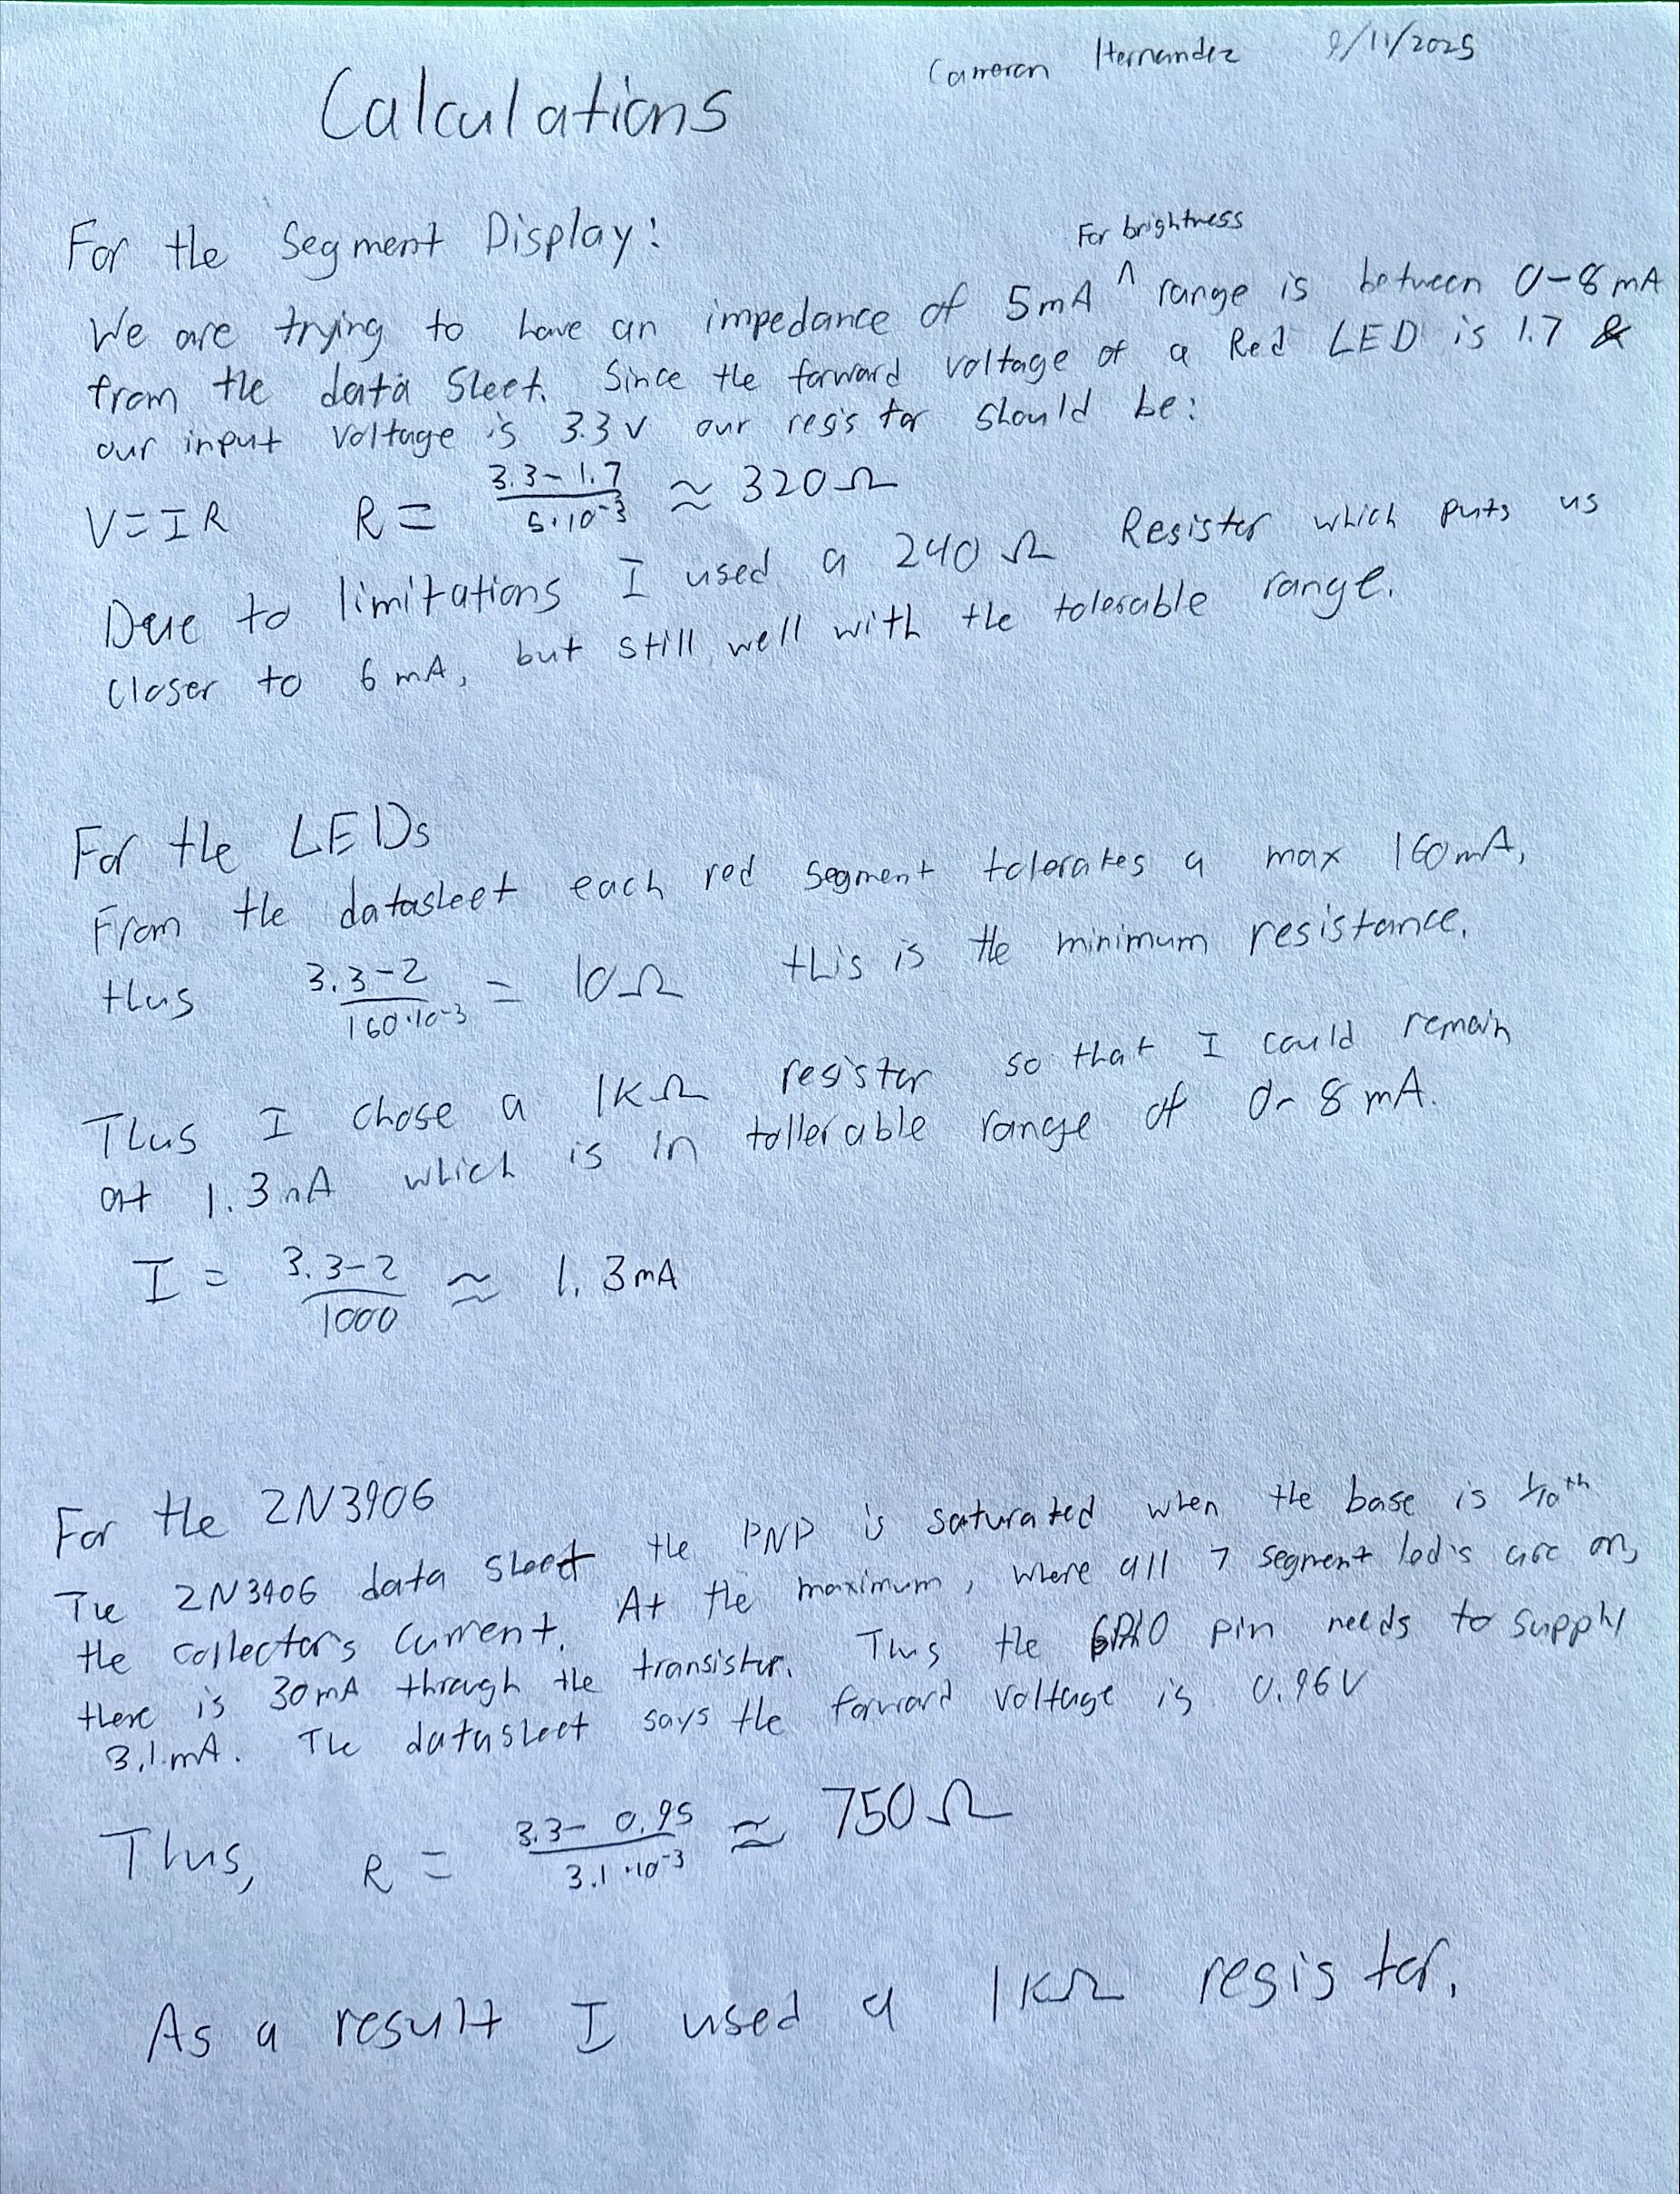 Cameron Hernandez 9/11/2025
Calculations
For the Segment Display:
For brightness
We are trying to have an impedance of 5mA ^ range is between 0-8 mA
from the data sheet. Since the forward voltage of a Red LED is 1.7 &
our input voltage is 3.3 V our resistor should be:
V=IR R = (3.3-1.7)/(5·10^-3) ≈ 320Ω
Due to limitations I used a 240 Ω Resistor which puts us
closer to 6 mA, but still well with the tolerable range.
For the LEDs
From the datasheet each red segment tolerates a max 160mA,
thus (3.3-2)/(160·10^-3) = 10Ω this is the minimum resistance.
Thus I chose a 1KΩ resistor so that I could remain
at 1.3mA which is in tollerable range of 0-8 mA.
I = (3.3-2)/1000 ≈ 1.3mA
For the 2N3906
The 2N3906 data sheet the PNP is saturated when the base is 1/10th
the collector's current. At the maximum, where all 7 segment led's are on,
there is 30mA through the transistor. Thus the GPIO pin needs to supply
3.1mA. The datasheet says the forward voltage is 0.96V
Thus, R = (3.3-0.95)/(3.1·10^-3) ≈ 750Ω
As a result I used a 1KΩ resistor.